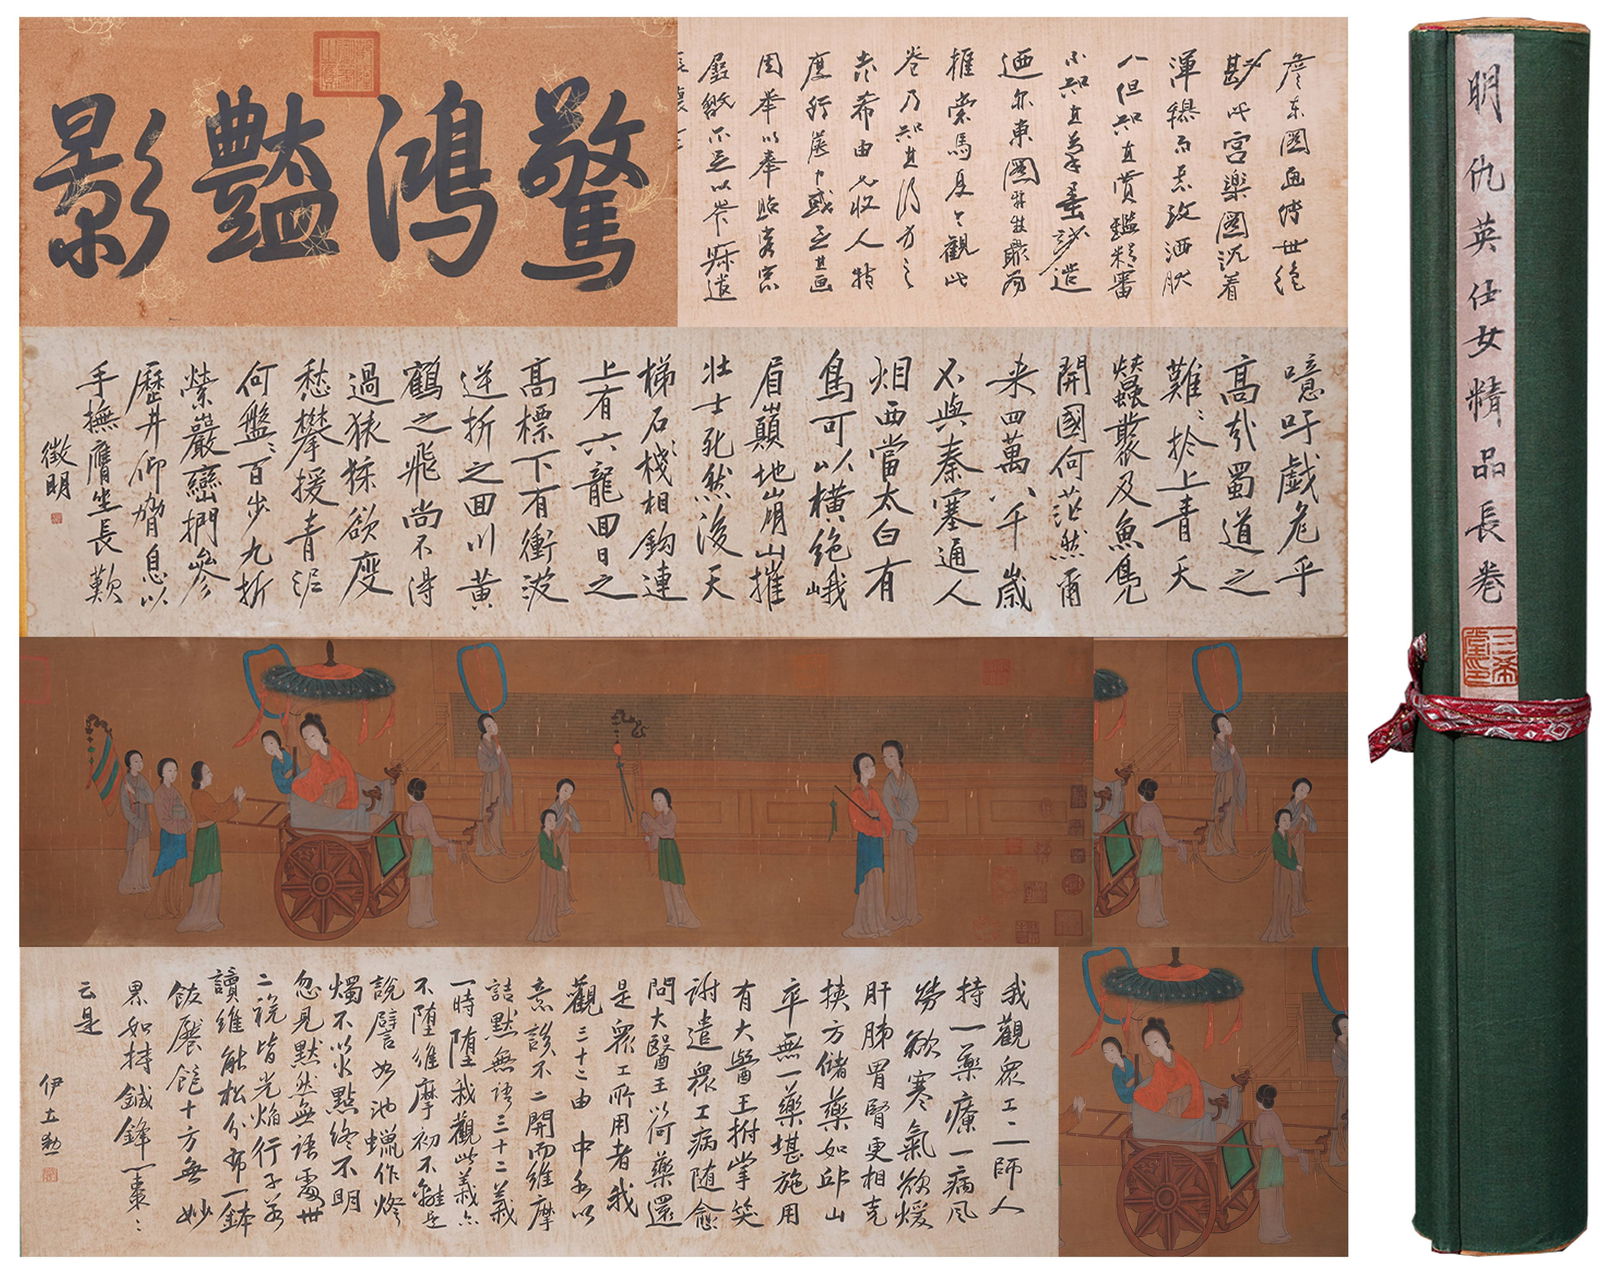 驚鴻豔影
詹東圖畫傳世絕
尠此宮樂圖沉着
渾穆而意致洒然
人但知其賞鑑精審
不知其筆墨造
迺爾東圖
推索馬夏之觀此
卷乃知其得力之
希由收人特
展或其画
因舉以奉貽
不足以
噫吁戲危乎
高哉蜀道之
難〻於上青天
蠶叢及魚鳧
開國何茫然爾
来四萬八千歲
不與秦塞通人
烟西當太白有
鳥可以橫絶峨
眉巔地崩山摧
壯士死然後天
梯石棧相鉤連
上有六龍回日之
高標下有衝波
逆折之回川黃
鶴之飛尚不得
過猿猱欲度
愁攀援青泥
何盤〻百步九折
縈巖巒捫參
歷井仰脅息以
手撫膺坐長歎
徵明
我觀眾工一師人
持一藥療一病風
勞欲寒氣欲煖
肝肺胃腎更相克
挾方儲藥如丘山
卒無一藥堪施用
有大醫王拊掌笑
謝遣眾工病随愈
問大醫王以何藥還
是眾工所用者我
觀三十二由中以
意談不二開而維摩
詰默無語三十二義
一時墮我觀此義亦
不墮維摩初不離是
說譬如油蠟作燈
燭不以火點終不明
忽見默然無語處卅
二說皆光焰行子若
讀維能松分布一鉢
飯饜飽十方無妙
果如持鍼鋒一棗〻
云是
伊立勳
明仇英仕女精品長卷
三希堂印